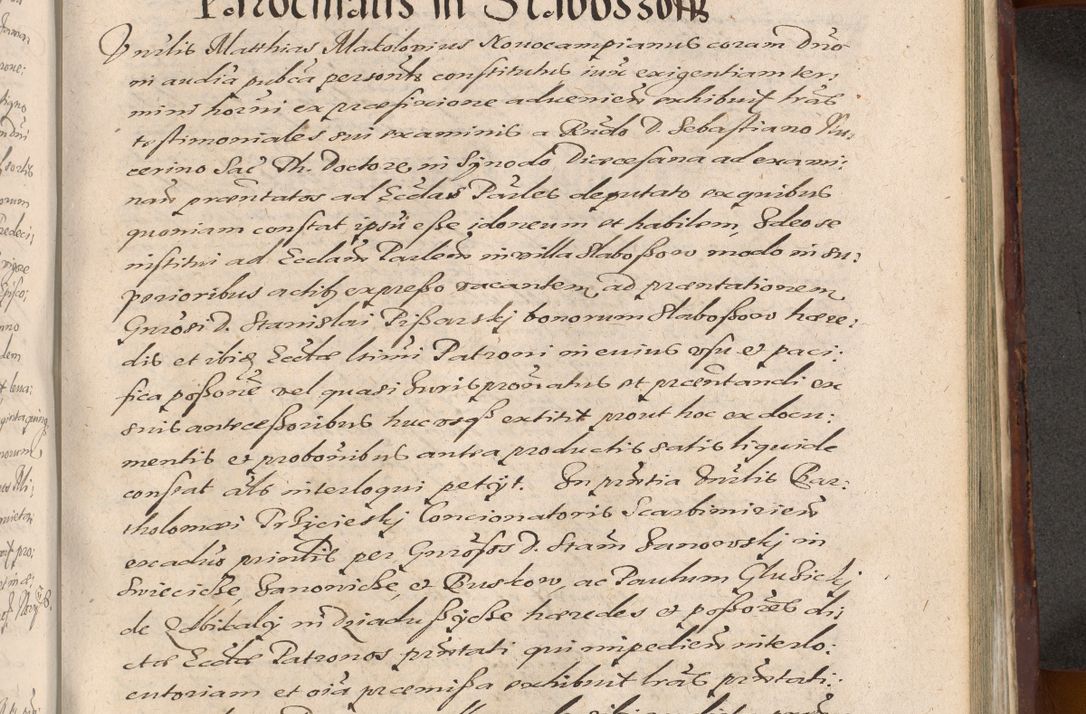 Parochialis in Slabossow
Vnrlis Matthias Makolovius Novocampianus coram Dno
in audia pubca personlr constitutus iux exigentiam ter:
mini horni ex praefixione advenien exhibuit lras
testimoniales sui examinis a Rndo D. Sebastiano Nu:
cerino Sac Th. Doctore, in Synodo Dioecesana ad exami:
nan praentatos ad Eccłas Parles deputato ex quibus
quoniam constat ipsu esse idoneum et habilem, Ideo se
institui ad Eccłam Parlem in villa Slabossow modo in su:
perioribus actib expresso vacantem, ad praentationem
Gnrosi D. Stanislai Pissarskj bonorum Slabossow haere:
dis et ibid Eccłae ltimi Patroni in cuius usu et paci:
fica possone vel quasi Iuris pronatus et praentandi ex
suis antecessoribus hucusq extitit prout hoc ex docu:
mentis et probonibus antea productis satis liquide
constat als interloqui petijt. In pntia Vnrlis Bar:
tholomaei Przycieskj Concionatoris Scarbimirien
ex aduo printis per Gnrosos D. Stam Janowskj in
Swiecicze Janowiche, et Buskow, ac Paulum Gluzickj
de Wbikalej in Dziaduszyche haeredes et possores di:
ctae Eccłae Patronos pntati qui impedien interlo:
cutoriam et oia praemissa exhibuit lras pntati: